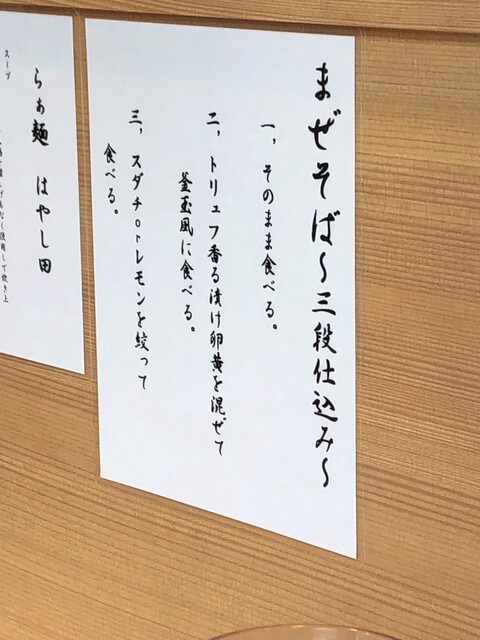 まぜそば〜三段仕込み〜
一，そのまま食べる。
二，トリュフ香る漬け卵黄を混ぜて
釜玉風に食べる。
三，スダチorレモンを絞って
食べる。
スープ
らぁ麺 はやし田